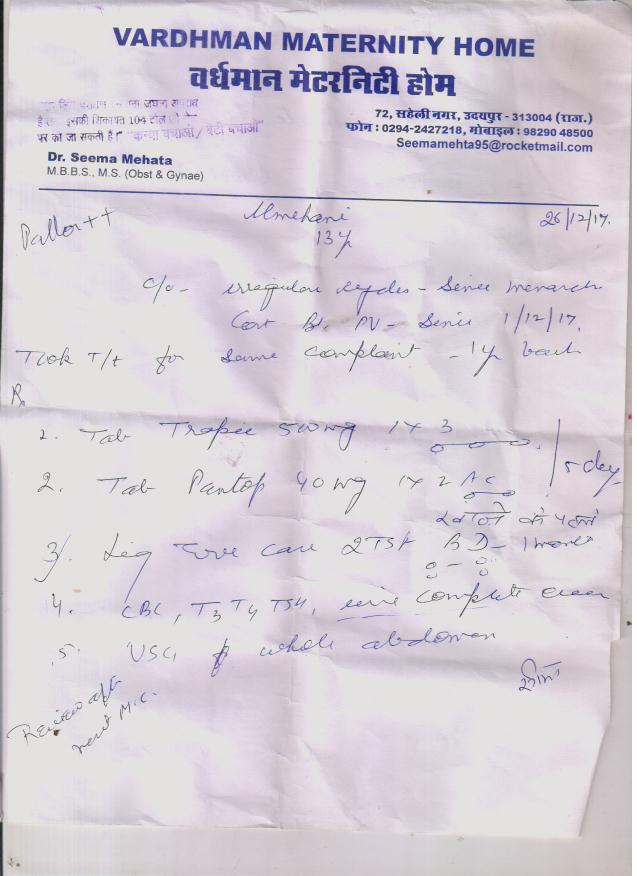 VARDHMAN MATERNITY HOME
वर्धमान मेटरनिटी होम
इसकी शिकायत 104 टोल
पर की जा सकती है। "कन्या बचाओ/ बेटी बचाओ"
72, सहेली नगर, उदयपुर - 313004 (राज.)
फोन : 0294-2427218, मोबाइल : 98290 48500
Seemamehta95@rocketmail.com
Dr. Seema Mehata
M.B.B.S., M.S. (Obst & Gynae)
26/12/17.
Pallor++
13y
c/o - irregular cycles - Since menarch
Cont Bl. PV - Since 1/12/17.
Took T/t for same complaint - 1y back
Rx
1. Tab 500 mg 1 x 3
5 day
2. Tab Pantop 40 mg 1 x 2 AC
3. Liq care 2TSF BD - 1 month
4. CBC, T3 T4 TSH, urine complete exam
5. USG of whole abdomen
Review aft
next M.C.